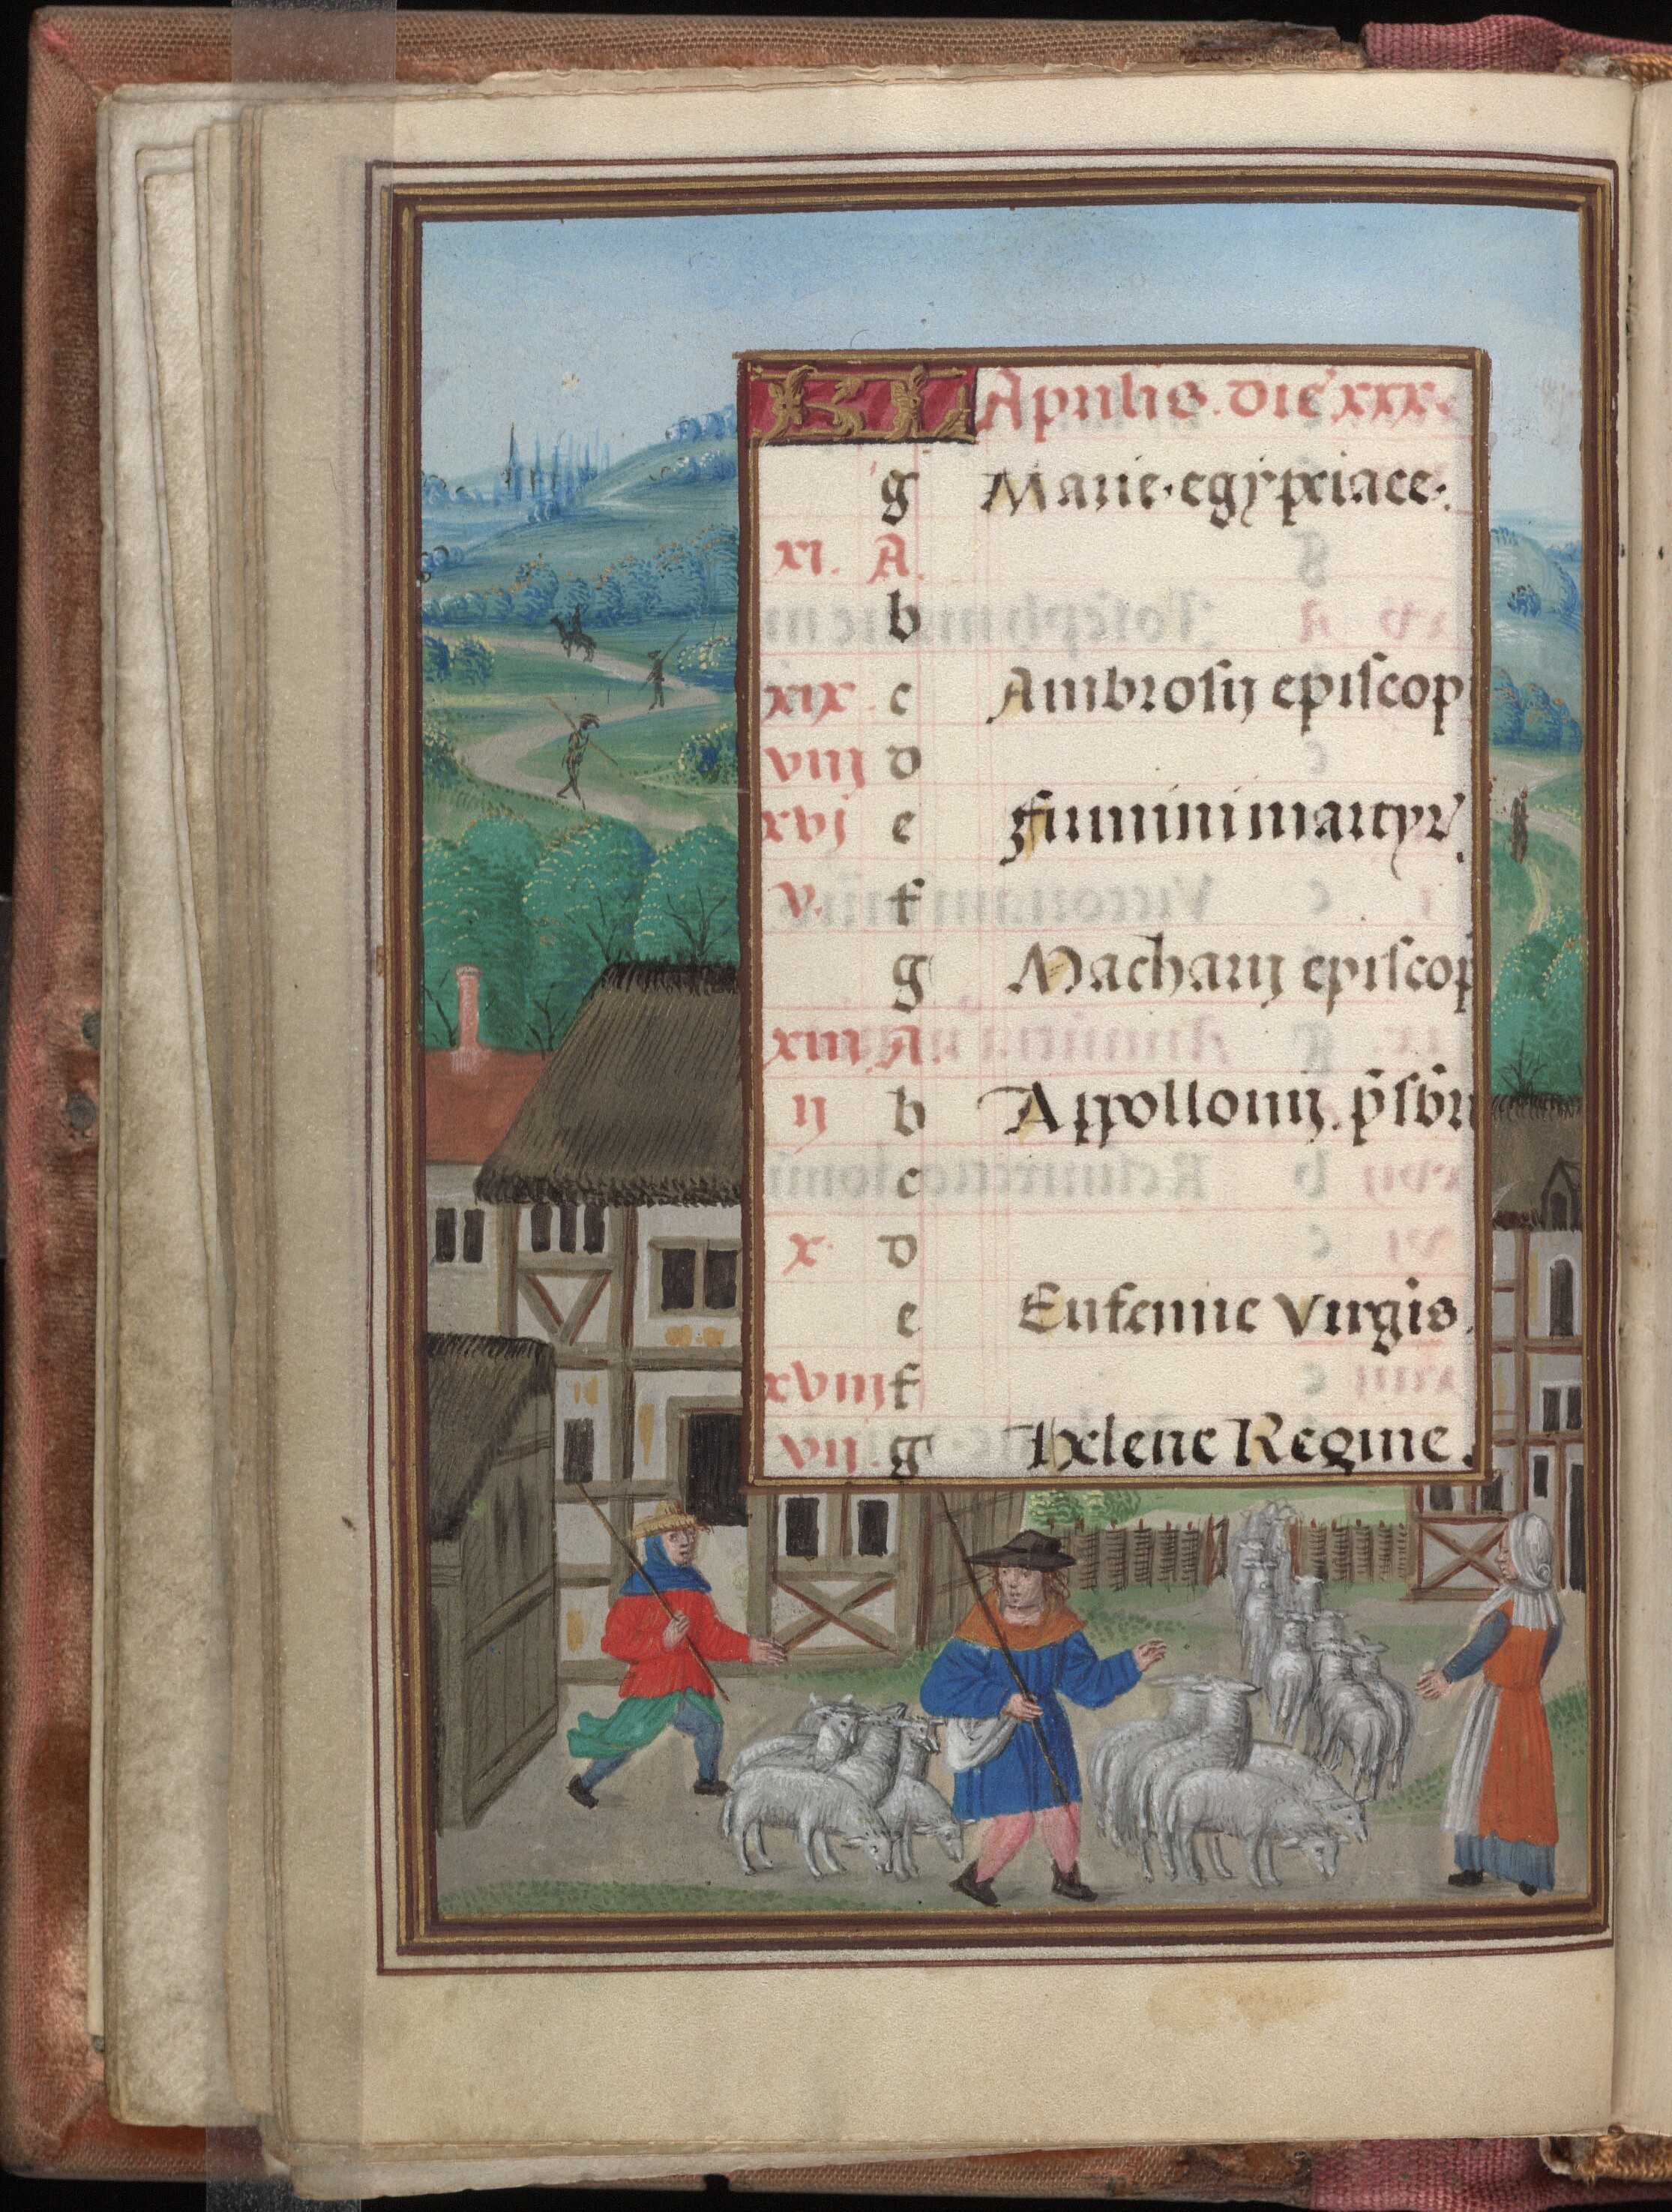 KL Aprilis. die xxx.
g Marie. egyptiace.
xi. A.
b
xix c Ambrosij episcopi
viij d
xvj e firmini martyr
v. f
g Macharij episcop
xiii A.
ij b Appollonij. p̄sbri
c
x. d
e Eufemie virgis.
xviij f
vij. g Helene Regine.